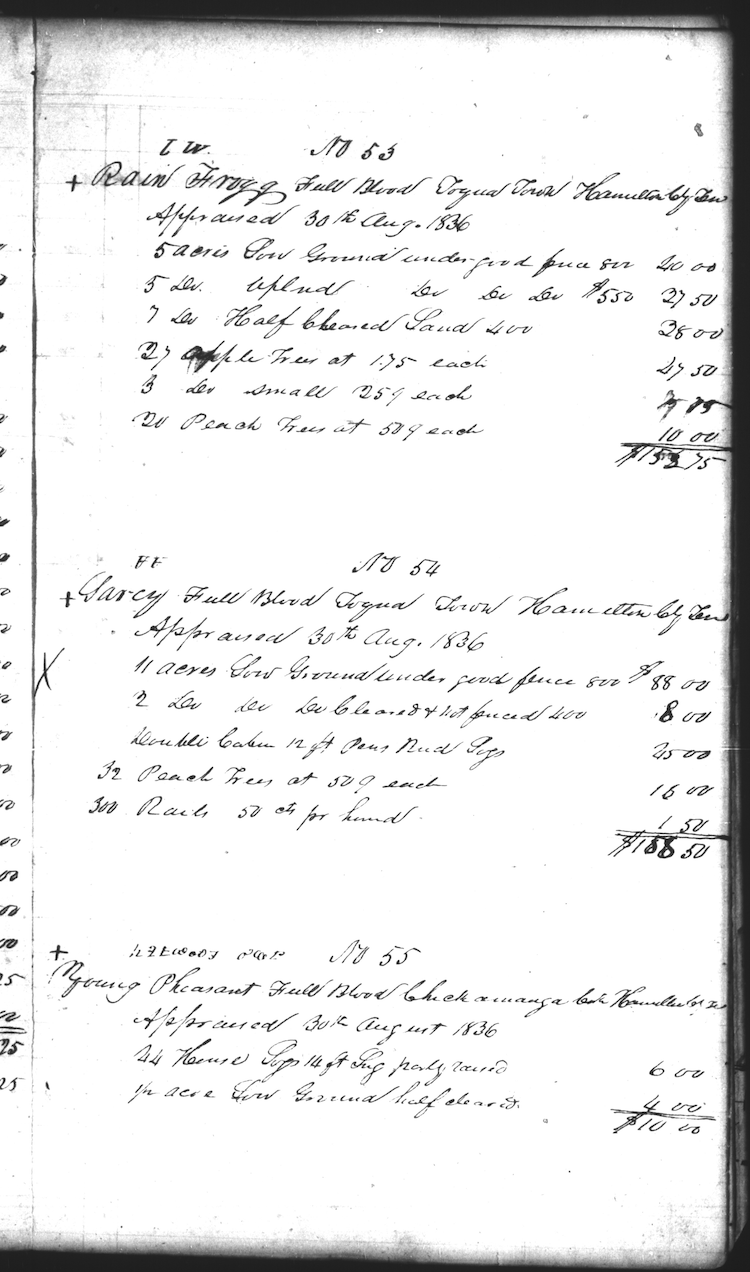 I W. No 53
+ Rain Frogg Full Blood Toqua Town Hamilton Cty Ten
Appraised 30th Aug. 1836
5 acres Low Ground under good fence 800 40 00
5 Do. Uplnd Do Do Do $550 27 50
7 Do Half Cleared Land 400 28 00
27 apple Trees at 1.75 each 47 50
3 Do small 25¢ each 75
20 Peach Trees at 50¢ each 10 00
$153 75
FF No 54
+ Garcy Full Blood Toqua Town Hamilton Cty Ten
Appraised 30th Aug. 1836
X 11 acres Low Ground under good fence 800 $88 00
2 Do Do Do Cleared & not fenced 400 8 00
Double Cabin 12 ft Pens Rud Logs 45 00
32 Peach Trees at 50¢ each 16 00
300 Rails 50 cts pr hund 1 50
$158 50
+ No 55
Young Pheasant Full Blood Chickamanga Hamilton
Appraised 30th August 1836
44 House Logs 14 ft Lng partly raised 6 00
1/2 acre Low Ground half cleared. 4 00
$10 00